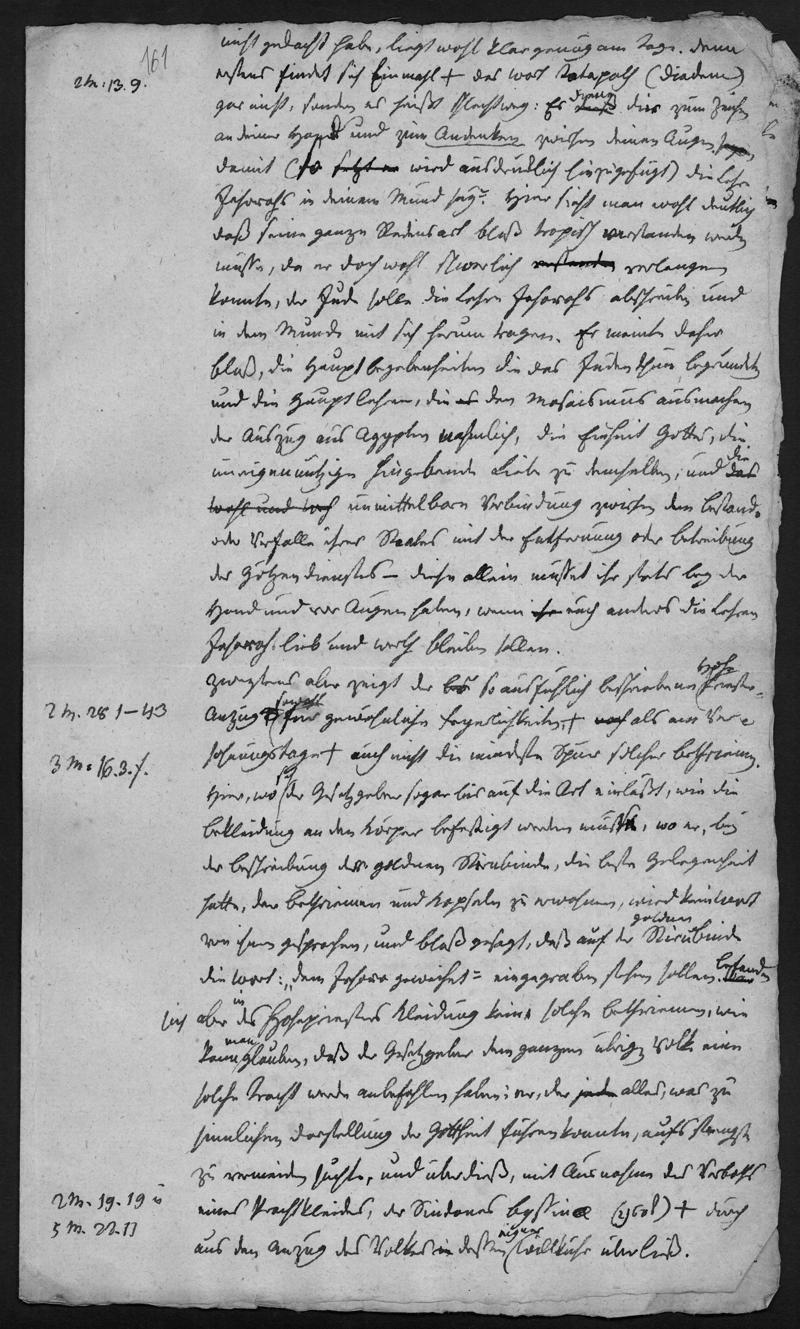 161
nicht gedacht habe, liegt wohl klar genug am Tage. denn
2 M: 13. 9.
erstens findet sich Einmahl + das wort Totapoth (Diadem)
gar nicht, sondern es heißt schlechtweg: Es diene dir zum Zeichen
an deiner Hand und zum Andenken zwischen deinen Augen
damit (so setzt er wird ausdrücklich hinzugefügt) die Lehre
Jehovahs in deinem Mund sey. Hier sieht man wohl deutlich
daß seine ganze Redensart bloß tropisch verstanden werden
müsse, da er doch wohl schwerlich verlangen
konnte, der Jude solle die Lehre Jehovahs abschreiben und
in dem Munde mit sich herum tragen. Er meinte daher
bloß, die Hauptbegebenheiten die das Judenthum begründeten
und die Hauptlehren, die es den Mosaismus ausmachen
der Auszug aus Egypten nahmlich, die Einheit Gottes, die
uneigennützige hingebende Liebe zu demselben, und die das
wohl und weh unmittelbare Verbindung zwischen dem Bestand
oder Verfalle ihres Staates mit der Entfernung oder betreibung
des Götzendienstes – diese allein müsset ihr stets bey der
Hand und vor Augen haben, wenn euch anders die Lehren
Jehovahs lieb und werth bleiben sollen.
zweytens aber zeigt der so ausführlich beschriebene Hohe Priester-
2 M. 28 1–43
Anzug sowohl für gewöhnliche feyerlichkeiten + als am Ver-
3 M: 16. 3. 4.
söhnungstage + auch nicht die mindeste Spur solcher bethriemen.
Hier, wo sich der Gesetzgeber sogar bis auf die Art einläßt, wie die
bekleidung an den Körper befestigt werden müsse, wo er, bey
der beschreibung der goldnen Stirnbinde, die beste Gelegenheit
hatte, der bethriemen und Kapseln zu erwähnen, wird kein wort
von ihnen gesprochen, und bloß gesagt, daß auf der goldnen Stirnbinde
die wort: „dem Jehova geweihet" eingegraben stehen sollen. befanden
sich aber in des Hohepriesters Kleidung keine solche bethriemen, wie
kann man glauben, daß der Gesetzgeber dem ganzen übrigen Volke eine
solche Tracht werde anbefohlen haben; er, der jede alles, was zu
sinnlichen darstellung der Gottheit führen konnte, aufs strengste
zu vermeiden suchte, und überdieß, mit Ausnahme des Verboths
2 M. 19. 19 u
eines Prachtkleides, der Sindones byssinae + durch
5 M. 22. 11
aus den Anzug des Volkes in dessen eigner Willkühr überließ.